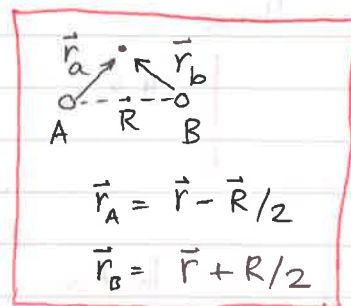 r⃗a r⃗b
R⃗
A B
r⃗A = r⃗ - R⃗/2
r⃗B = r⃗ + R/2